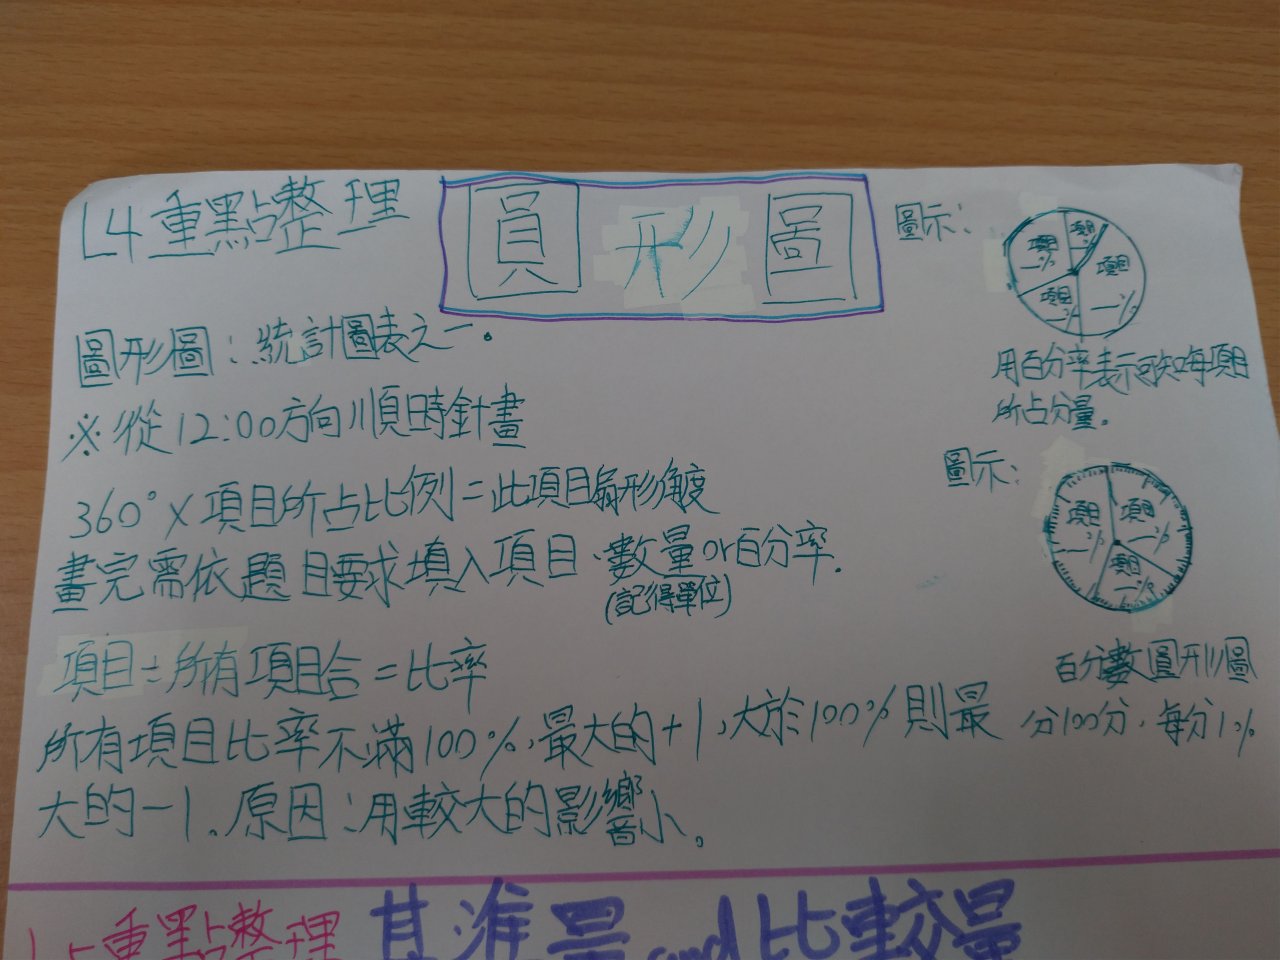 L4重點整理
圓形圖
圖形圖：統計圖表之一。
※從12:00方向順時針畫
360°×項目所占比例=此項目扇形角度
畫完需依題目要求填入項目、數量or百分率.
(記得單位)
項目÷所有項目合=比率
所有項目比率不滿100%,最大的+1,大於100%則最
大的-1。原因:用較大的影響小。
圖示:
項目
項目
一%
項目
一%
項目
%
用百分率表示可知每項目
所占分量。
圖示:
項目
一%
項目
一%
項目
一%
百分數圓形圖
分100分,每分1%
重點整理
基準量and比較量